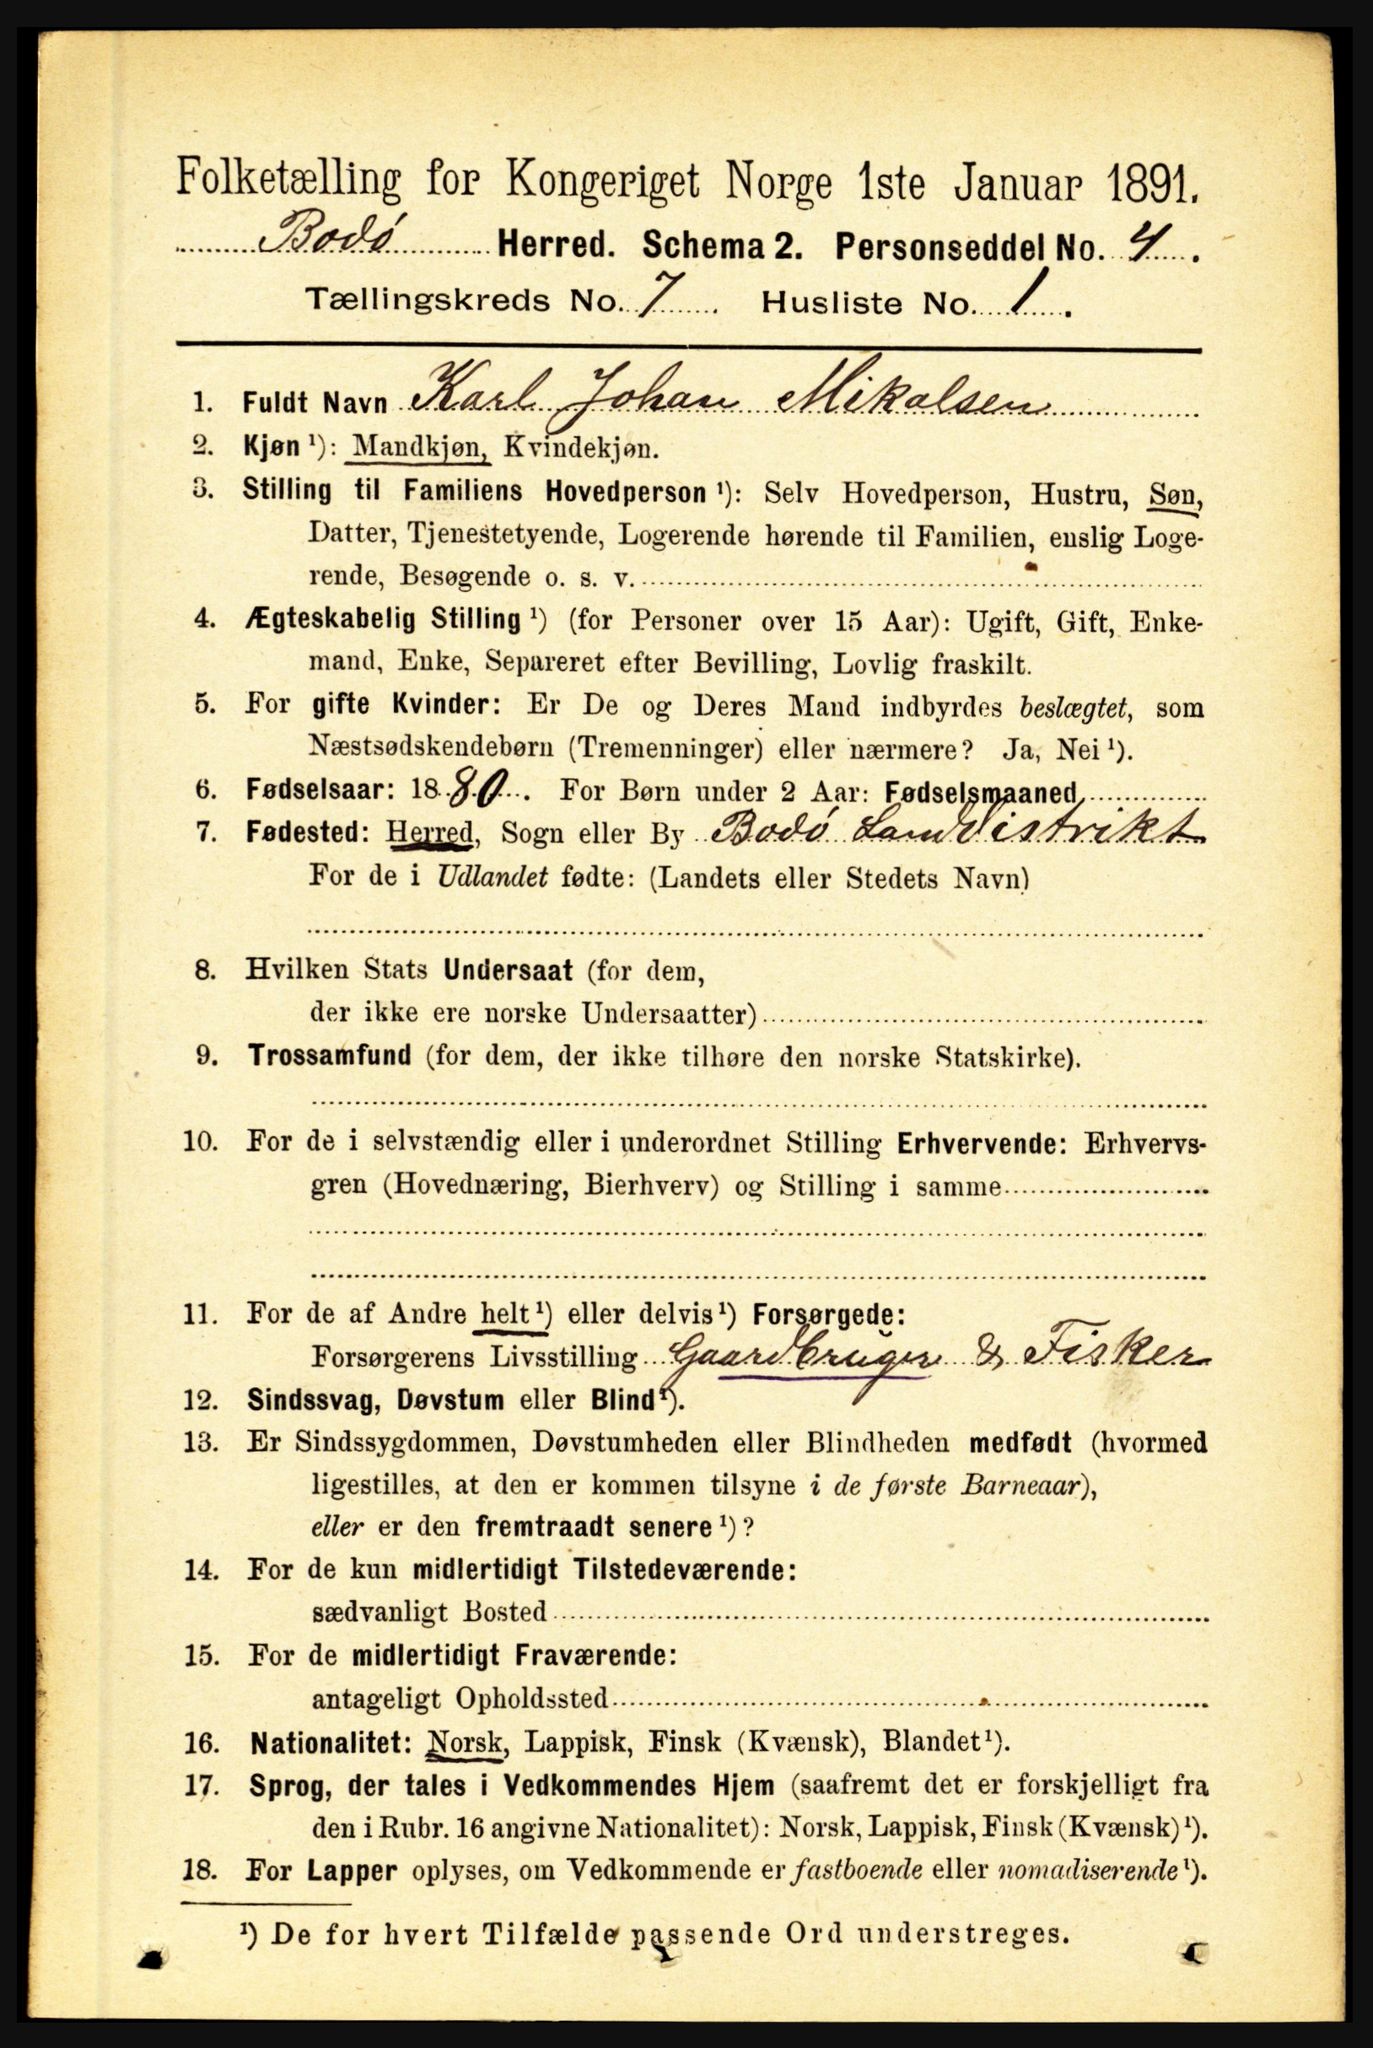 Folketælling for Kongeriget Norge 1ste Januar 1891.
Bodø Herred. Schema 2. Personseddel No. 4.
Tællingskreds No. 7 Husliste No. 1.
1. Fuldt Navn Karl Johan Mikalsen
2. Kjøn ¹): Mandkjøn, Kvindekjøn.
3. Stilling til Familiens Hovedperson ¹): Selv Hovedperson, Hustru, Søn,
Datter, Tjenestetyende, Logerende hørende til Familien, enslig Loge-
rende, Besøgende o. s. v.
4. Ægteskabelig Stilling ¹) (for Personer over 15 Aar): Ugift, Gift, Enke-
mand, Enke, Separeret efter Bevilling, Lovlig fraskilt.
5. For gifte Kvinder: Er De og Deres Mand indbyrdes beslægtet, som
Næstsødskendebørn (Tremenninger) eller nærmere? Ja, Nei ¹).
6. Fødselsaar: 1880. For Børn under 2 Aar: Fødselsmaaned
7. Fødested: Herred, Sogn eller By Bodø Landdistrikt
For de i Udlandet fødte: (Landets eller Stedets Navn)
8. Hvilken Stats Undersaat (for dem,
der ikke ere norske Undersaatter)
9. Trossamfund (for dem, der ikke tilhøre den norske Statskirke).
10. For de i selvstændig eller i underordnet Stilling Erhvervende: Erhvervs-
gren (Hovednæring, Bierhverv) og Stilling i samme
11. For de af Andre helt ¹) eller delvis ¹) Forsørgede:
Forsørgerens Livsstilling Gaardbruger & Fisker
12. Sindssvag, Døvstum eller Blind ¹).
13. Er Sindssygdommen, Døvstumheden eller Blindheden medfødt (hvormed
ligestilles, at den er kommen tilsyne i de første Barneaar),
eller er den fremtraadt senere ¹)?
14. For de kun midlertidigt Tilstedeværende:
sædvanligt Bosted
15. For de midlertidigt Fraværende:
antageligt Opholdssted
16. Nationalitet: Norsk, Lappisk, Finsk (Kvænsk), Blandet ¹).
17. Sprog, der tales i Vedkommendes Hjem (saafremt det er forskjelligt fra
den i Rubr. 16 angivne Nationalitet): Norsk, Lappisk, Finsk (Kvænsk) ¹).
18. For Lapper oplyses, om Vedkommende er fastboende eller nomadiserende ¹).
¹) De for hvert Tilfælde passende Ord understreges.